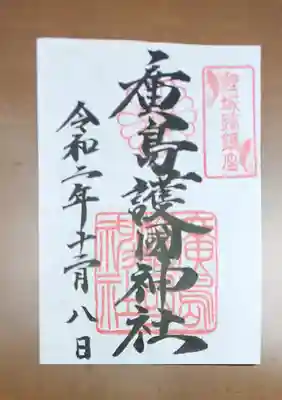 鯉城跡鎮座
廣島護國神社
廣島護國神社
令和二年十二月八日